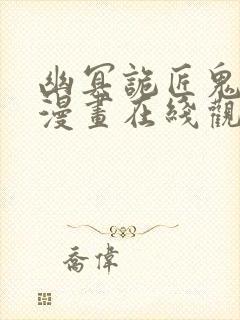 幽冥詭匠鬼
漫畫在綫觀
喬偉